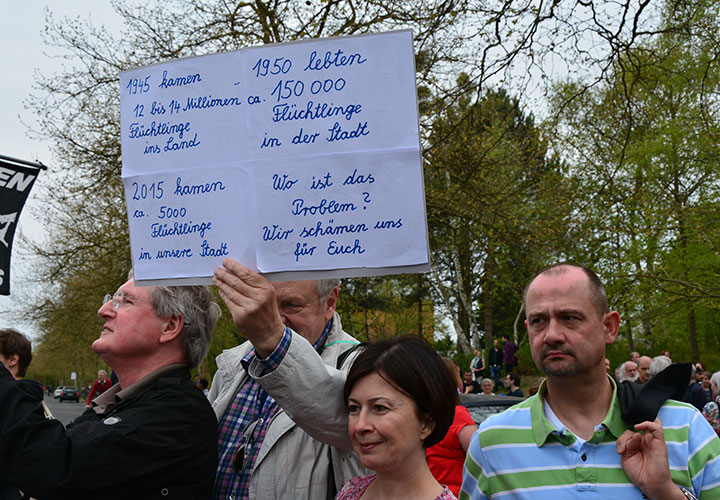 1945 kamen
12 bis 14 Millionen
Flüchtlinge
ins Land
- 1950 lebten
ca. 150 000
Flüchtlinge
in der Stadt
2015 kamen
ca. 5000
Flüchtlinge
in unsere Stadt
Wo ist das
Problem?
Wir schämen uns
für Euch